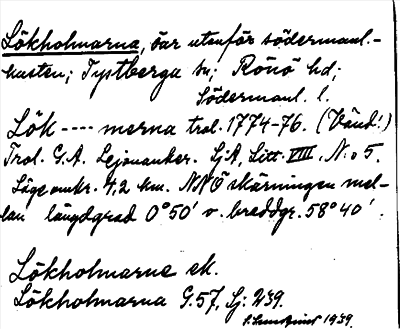 Lökholmarna, öar utanför södermanl.-
kusten; Tystberga sn; Rönö hd;
Södermanl. l.
Lök---- merna trol. 1774-76. (Vänd!)
Trol. G.A. Lejonanker. SjA, Litt. VIII. N:o 5.
Läge omkr. 4,2 km. NNÖ skärningen mel-
lan längdgrad 0°50' o. breddgr. 58°40'.
Lökholmarne ek.
Lökholmarna G.57, Sj: 239.
1939.